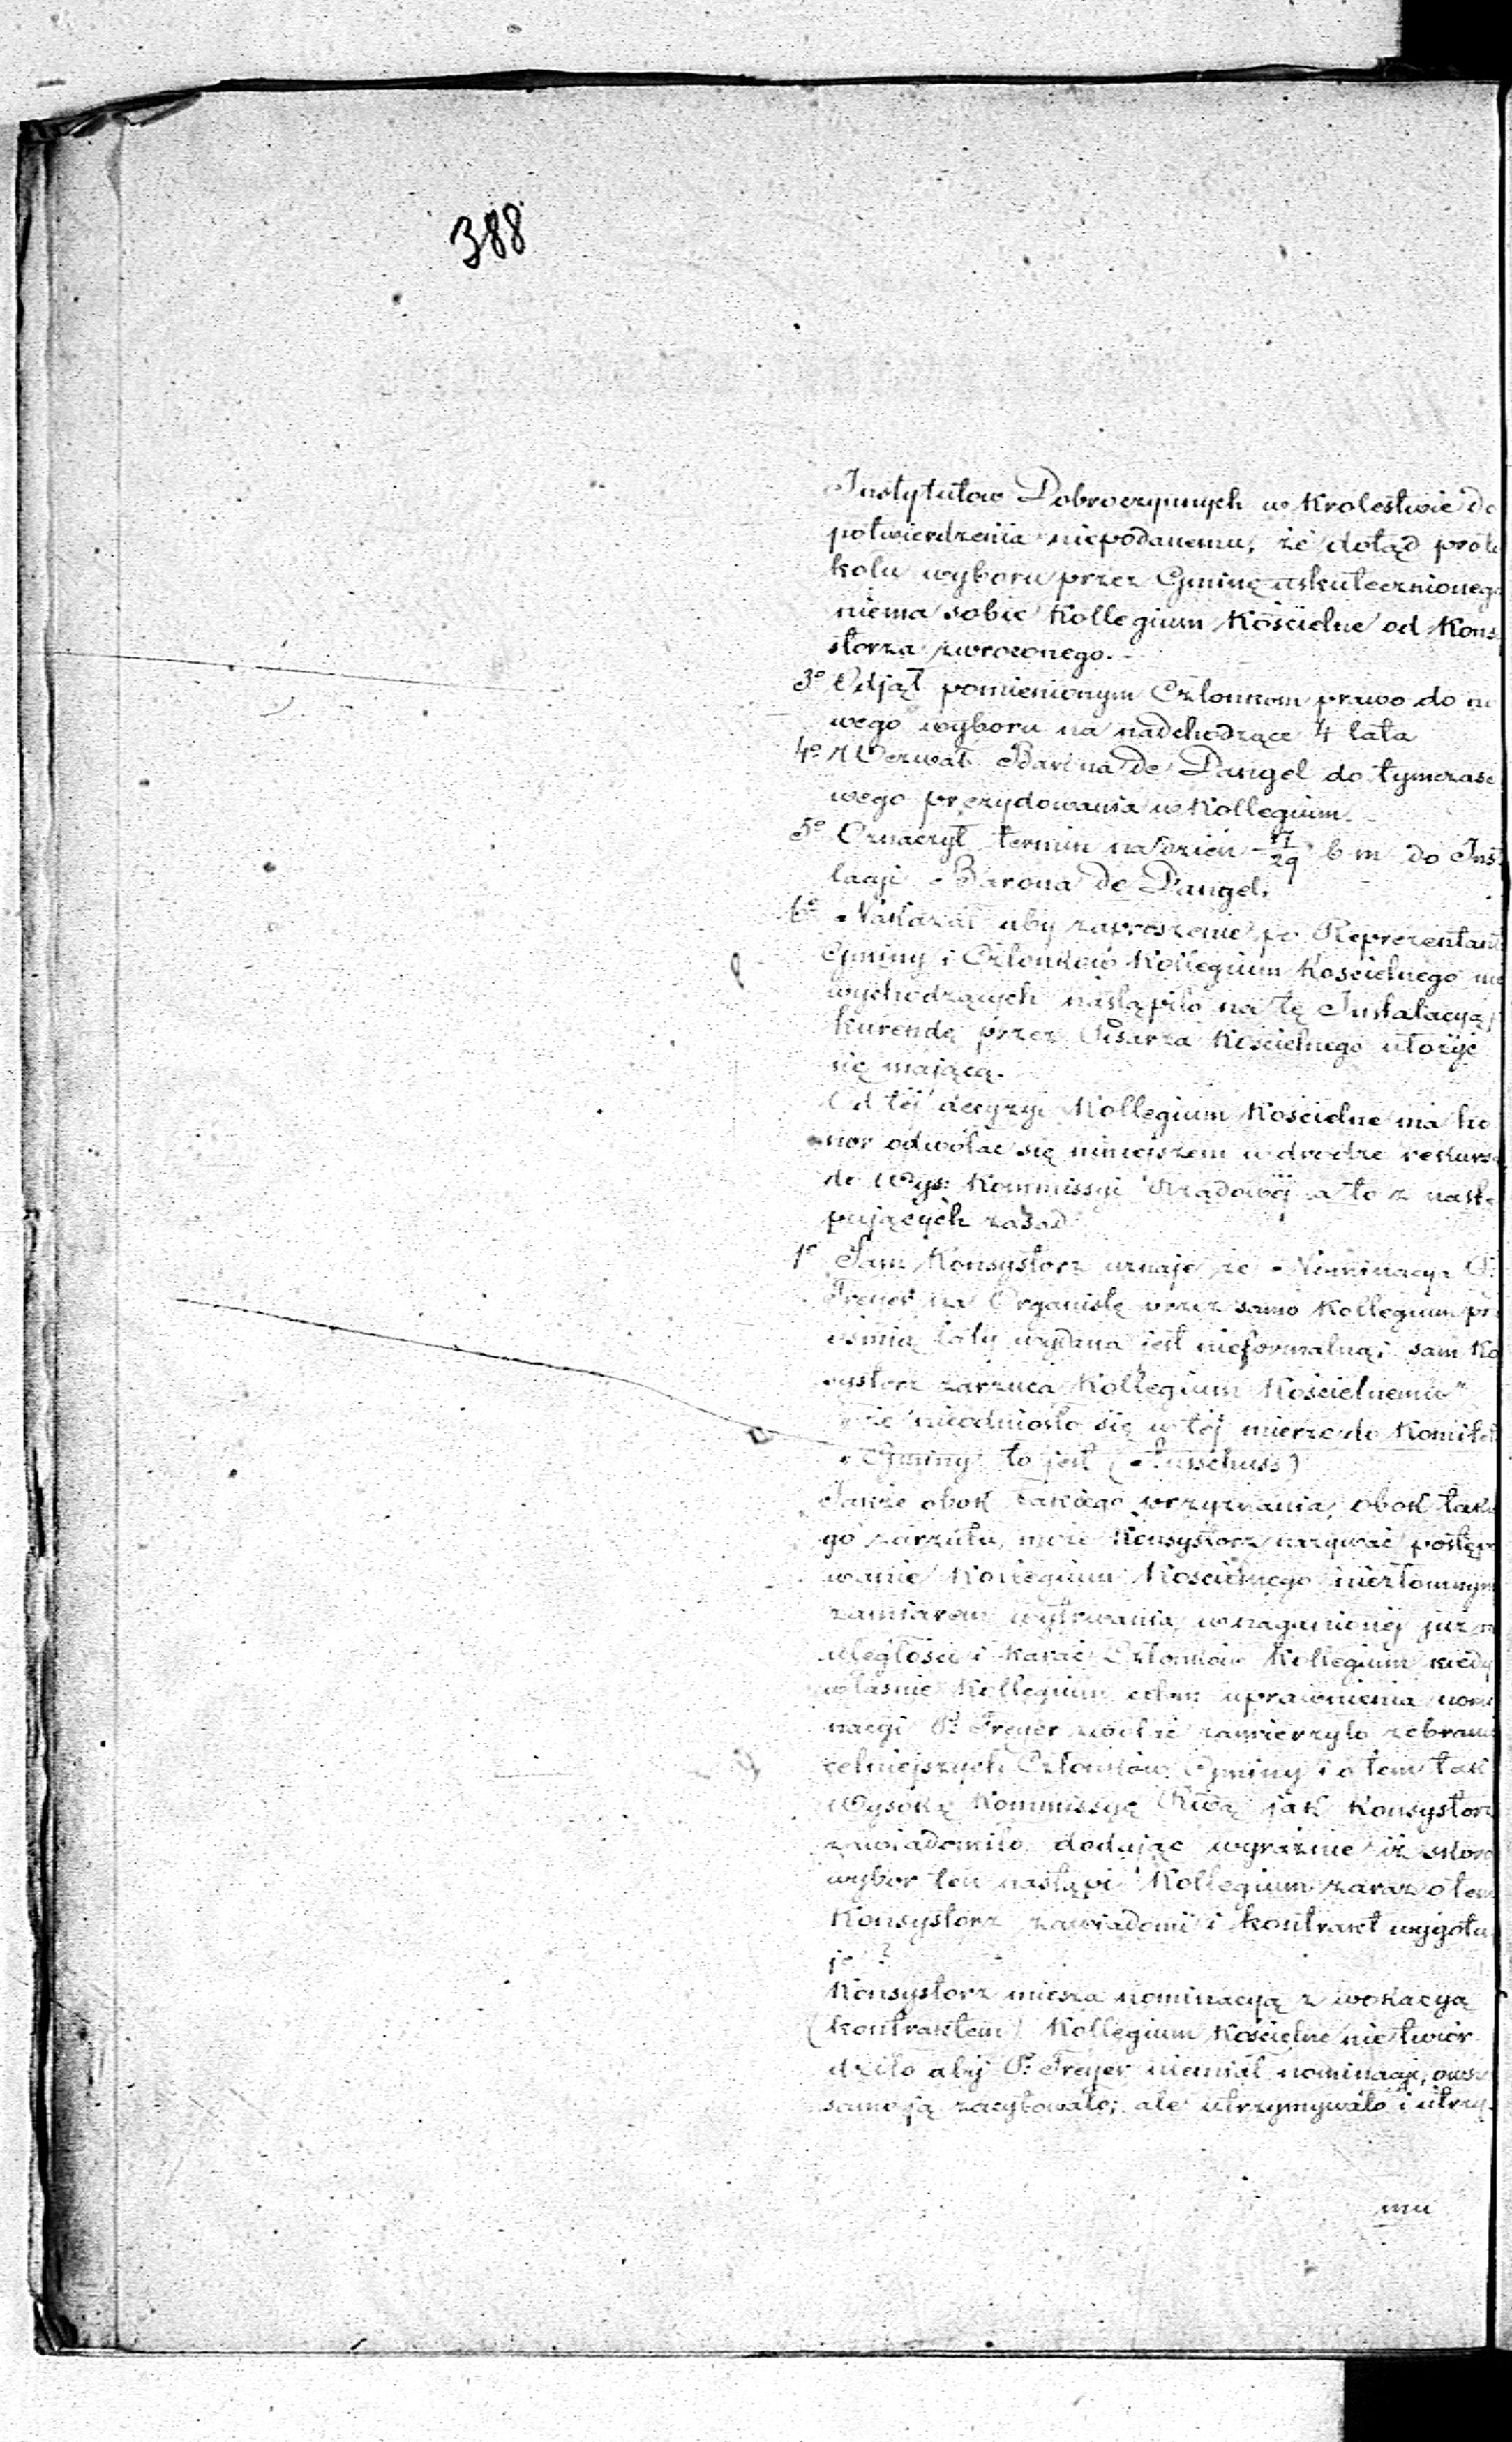 388
Instytutow Dobroczynnych w Krolestwie do
potwierdzenia niepodanemu, że dotąd proto
kołu wyboru przez Gminę uskutecznionego
niema sobie Kollegium Kościelne od Konsy
storza zwroconego.
3º Odjął pomienionym Członkom prawo do no
wego wyboru na nadchodzące 4 lata
4º Wezwał Barona de Dangel do tymczaso
wego prezydowania w Kollegium.
5º Oznaczył termin na dzień 17/29 b m do Inst
lacyi Barona de Dangel,
6º Nakazał aby zaproszenie po Reprezentant
Gminy i Członków Kollegium Kościelnego nie
wychodzących nastąpiło na tę Instalacyą
kurendę przez Pisarza Kościelnego ułożyć
się mającą.
Od téj decyzyi Kollegium Kościelne ma ho
nor odwołać się niniejszem w drodze rekursu
do Wys: Kommissyi Rządowéj a to z nastę
pujących zasad
1º Sam Konsystorz uznaje że Nominacya P.
Freyer na Organistę przez samo Kollegium prz
ośmią laty wydana jest nieformalną; sam Ko
systorz zarzuca Kollegium Kościelnemu"
że nieodniosło się w téj mierze do Komitet
Gminy to jest (Ausschuss)
Jakże obok takiego przyznania, obok take
go zarzutu, może Konsystorz nazywać postępo
wanie Kollegium Kościelnego niezłomnym
zamiarem wytrwania w naganionéj już n
uległości i karać Członków Kollegium kiedy
właśnie Kollegium celem uprawnienia nomi
nacyi P. Freyer zwołać zamierzyło zebranie
celniejszych Członków Gminy i o tem tak
Wysoką Kommissyę Rwą jak Konsystorz
zawiadomiło dodając wyraźnie iż skoro
wybor ten nastąpi Kollegium zaraz o tem
Konsystorz zawiadomi i kontrakt wygotu
je ?
Konsystorz miesza nominacyą z wokacyą
(kontraktem) Kollegium Kościelne nie twier
dziło aby P. Freyer niemiał nominacyi, owsz
samo ją zacytowało; ale utrzymywało i utrzy-
mu